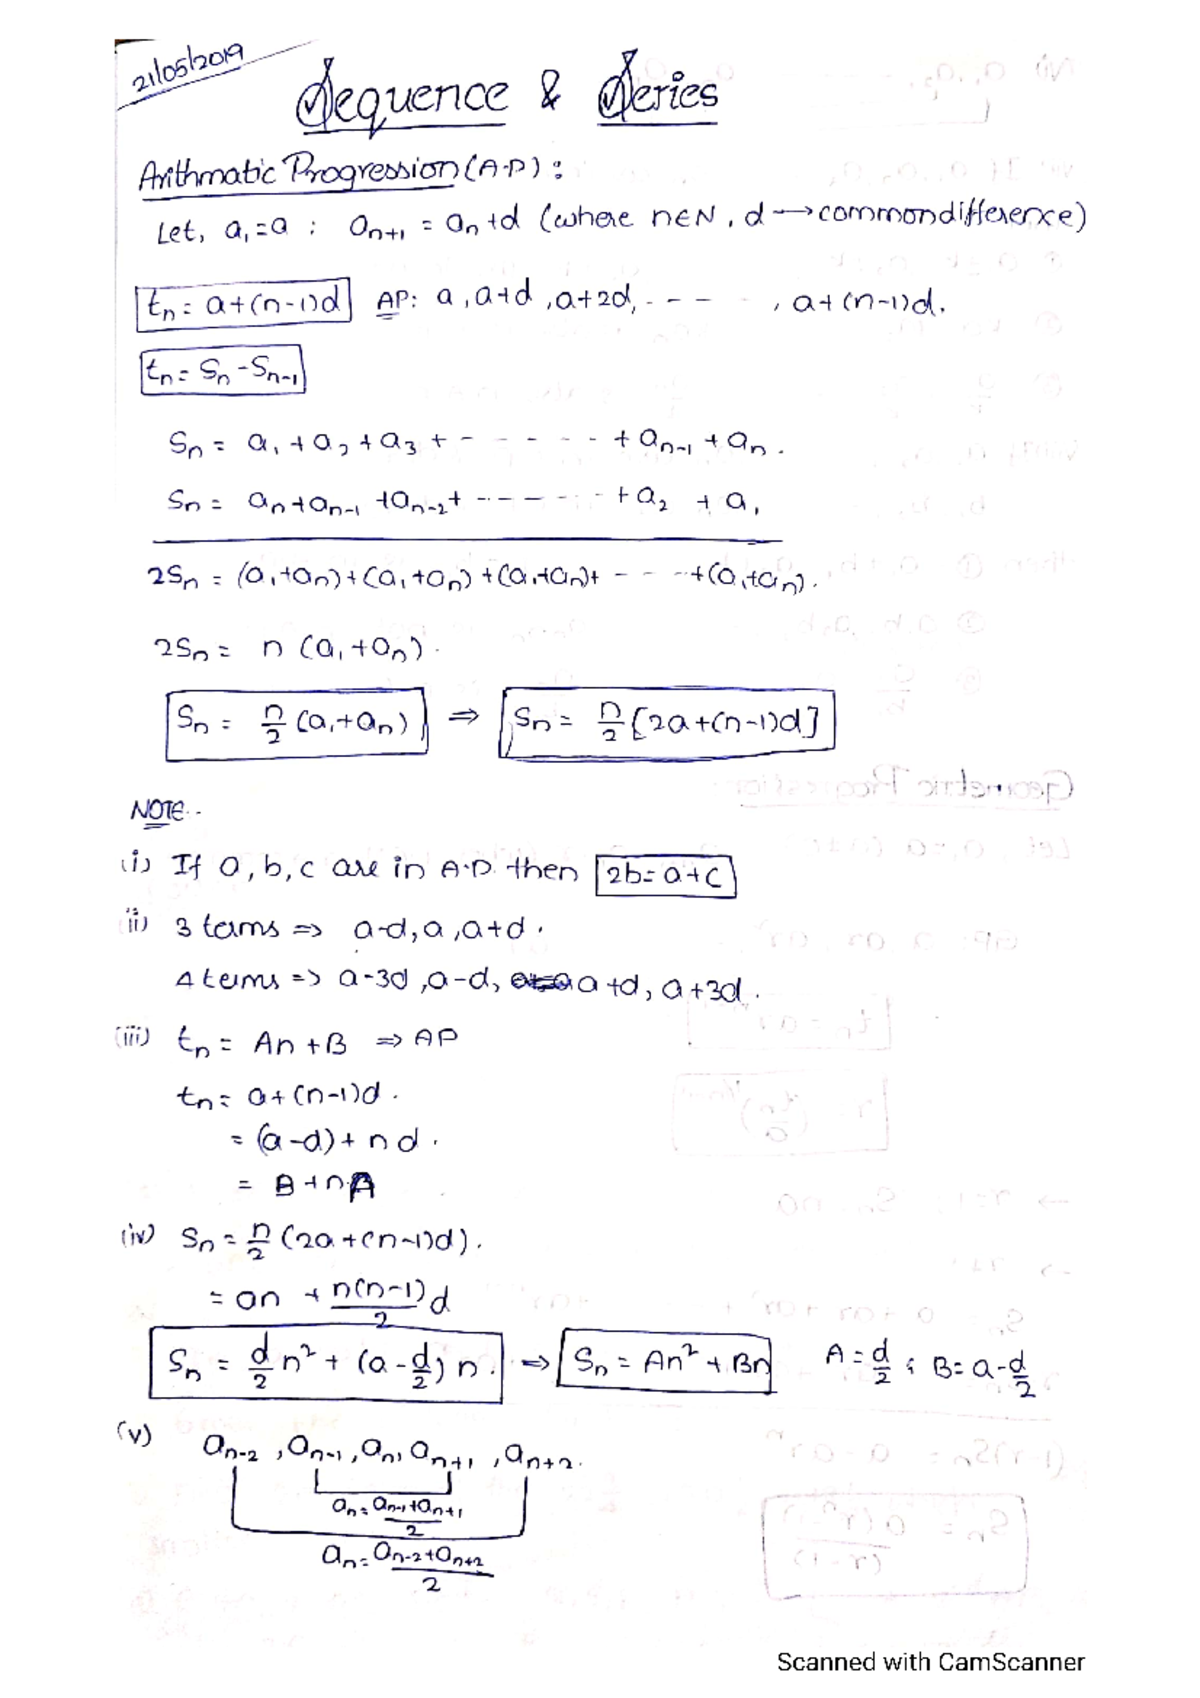 21/05/2019
Sequence & Series
Arithmatic Progression (A.P) :
Let, a₁=a : aₙ₊₁ = aₙ+d (where n∈N, d→common difference)
tₙ = a+(n-1)d AP: a, a+d, a+2d, - - - - , a+(n-1)d.
tₙ = Sₙ-Sₙ₋₁
Sₙ = a₁ + a₂ + a₃ + - - - - - - + aₙ₋₁ + aₙ.
Sₙ = aₙ+aₙ₋₁ +aₙ₋₂+ - - - - - - + a₂ + a₁
2Sₙ = (a₁+aₙ)+(a₁+aₙ)+(a₁+aₙ)+ - - - +(a₁+aₙ).
2Sₙ = n (a₁+aₙ).
Sₙ = n/2 (a₁+aₙ) ⇒ Sₙ = n/2 [2a+(n-1)d]
NOTE:-
(i) If a, b, c are in A.P. then 2b=a+c
(ii) 3 terms ⇒ a-d, a, a+d.
4 terms ⇒ a-3d, a-d, a+d, a+3d.
(iii) tₙ = An+B ⇒ AP
tₙ = a+(n-1)d.
= (a-d)+nd.
= B+nA
(iv) Sₙ = n/2 (2a+(n-1)d).
= an + n(n-1)/2 d
Sₙ = d/2 n² + (a-d/2) n. ⇒ Sₙ = An²+Bn A = d/2 ; B = a-d/2
(v) aₙ₋₂, aₙ₋₁, aₙ, aₙ₊₁, aₙ₊₂.
aₙ = aₙ₋₁+aₙ₊₁/2
aₙ = aₙ₋₂+aₙ₊₂/2
Scanned with CamScanner